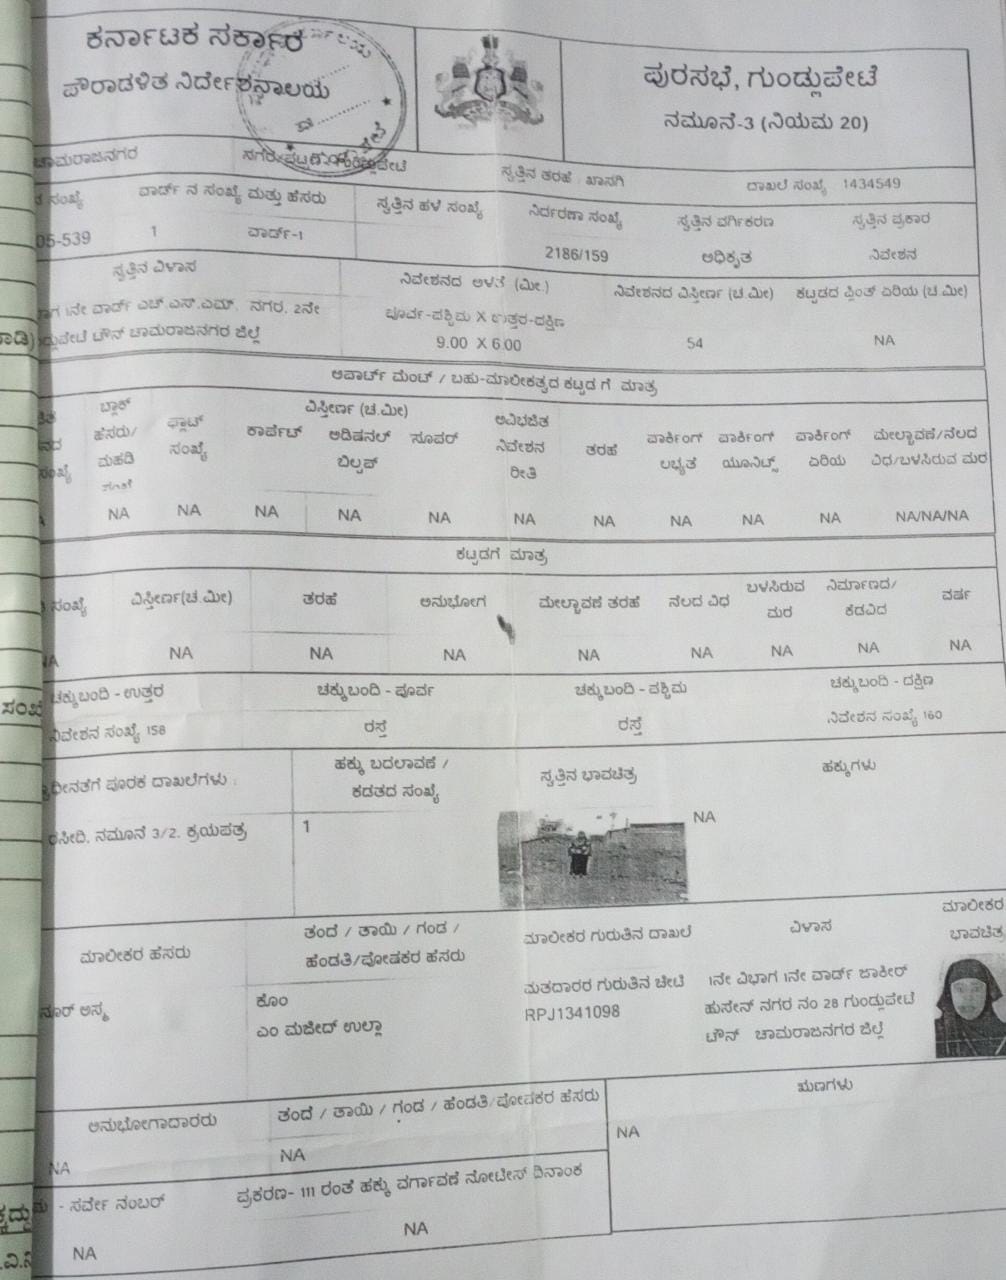 ಕರ್ನಾಟಕ ಸರ್ಕಾರ
ಪೌರಾಡಳಿತ ನಿರ್ದೇಶನಾಲಯ
ಪುರಸಭೆ, ಗುಂಡ್ಲುಪೇಟೆ
ನಮೂನೆ-3 (ನಿಯಮ 20)
ಚಾಮರಾಜನಗರ
ಸ್ವತ್ತಿನ ತರಹೆ : ಖಾಸಗಿ
ದಾಖಲೆ ಸಂಖ್ಯೆ 1434549
ಸಂಖ್ಯೆ ವಾರ್ಡ್ ನ ಸಂಖ್ಯೆ ಮತ್ತು ಹೆಸರು ಸ್ವತ್ತಿನ ಹಳೆ ಸಂಖ್ಯೆ ನಿರ್ದರಣಾ ಸಂಖ್ಯೆ ಸ್ವತ್ತಿನ ವರ್ಗಿಕರಣ ಸ್ವತ್ತಿನ ಪ್ರಕಾರ
05-539 1 ವಾರ್ಡ್-1 2186/159 ಅಧಿಕೃತ ನಿವೇಶನ
ಸ್ವತ್ತಿನ ವಿಳಾಸ ನಿವೇಶನದ ಅಳತೆ (ಮೀ.) ನಿವೇಶನದ ವಿಸ್ತೀರ್ಣ (ಚ.ಮೀ) ಕಟ್ಟಡದ ಪ್ಲಿಂತ್ ಏರಿಯ (ಚ.ಮೀ)
1ನೇ ವಾರ್ಡ್ ಎಚ್.ಎಸ್.ಎಮ್. ನಗರ, 2ನೇ ಪೂರ್ವ-ಪಶ್ಚಿಮ X ಉತ್ತರ-ದಕ್ಷಿಣ
ಟೌನ್ ಚಾಮರಾಜನಗರ ಜಿಲ್ಲೆ 9.00 X 6.00 54 NA
ಅಪಾರ್ಟ್ ಮೆಂಟ್ / ಬಹು-ಮಾಲೀಕತ್ವದ ಕಟ್ಟಡ ಗೆ ಮಾತ್ರ
ಬ್ಲಾಕ್ ವಿಸ್ತೀರ್ಣ (ಚ.ಮೀ) ಅವಿಭಜಿತ
ಹೆಸರು/ ಫ್ಲಾಟ್ ಕಾರ್ಪೆಟ್ ಅಡಿಷನಲ್ ಸೂಪರ್ ನಿವೇಶನ ತರಹೆ ಪಾರ್ಕಿಂಗ್ ಪಾರ್ಕಿಂಗ್ ಪಾರ್ಕಿಂಗ್ ಮೇಲ್ಛಾವಣಿ/ನೆಲದ
ಮಹಡಿ ಸಂಖ್ಯೆ ಬಿಲ್ಟಪ್ ರೀತಿ ಲಭ್ಯತೆ ಯೂನಿಟ್ಸ್ ಏರಿಯ ವಿಧ/ಬಳಸಿರುವ ಮರ
NA NA NA NA NA NA NA NA NA NA NA/NA/NA
ಕಟ್ಟಡಗೆ ಮಾತ್ರ
ಸಂಖ್ಯೆ ವಿಸ್ತೀರ್ಣ(ಚ.ಮೀ) ತರಹೆ ಅನುಭೋಗ ಮೇಲ್ಛಾವಣಿ ತರಹೆ ನೆಲದ ವಿಧ ಬಳಸಿರುವ ಮರ ನಿರ್ಮಾಣದ/ ಕೆಡವಿದ ವರ್ಷ
NA NA NA NA NA NA NA NA NA
ಚಕ್ಕುಬಂದಿ - ಉತ್ತರ ಚಕ್ಕುಬಂದಿ - ಪೂರ್ವ ಚಕ್ಕುಬಂದಿ - ಪಶ್ಚಿಮ ಚಕ್ಕುಬಂದಿ - ದಕ್ಷಿಣ
ನಿವೇಶನ ಸಂಖ್ಯೆ 158 ರಸ್ತೆ ರಸ್ತೆ ನಿವೇಶನ ಸಂಖ್ಯೆ 160
ಪೂರಕ ದಾಖಲೆಗಳು : ಹಕ್ಕು ಬದಲಾವಣೆ / ಸ್ವತ್ತಿನ ಭಾವಚಿತ್ರ ಹಕ್ಕುಗಳು
ಕಡತದ ಸಂಖ್ಯೆ
ರಸೀದಿ, ನಮೂನೆ 3/2. ಕ್ರಯಪತ್ರ 1 NA
ಮಾಲೀಕರ ಹೆಸರು ತಂದೆ / ತಾಯಿ / ಗಂಡ / ಮಾಲೀಕರ ಗುರುತಿನ ದಾಖಲೆ ವಿಳಾಸ ಮಾಲೀಕರ
ಹೆಂಡತಿ/ಪೋಷಕರ ಹೆಸರು ಭಾವಚಿತ್ರ
ನೂರ್ ಅಸ್ಮ ಕೊಂ ಮತದಾರರ ಗುರುತಿನ ಚೀಟಿ 1ನೇ ವಿಭಾಗ 1ನೇ ವಾರ್ಡ್ ಜಾಕೀರ್
ಎಂ ಮಜೀದ್ ಉಲ್ಲಾ RPJ1341098 ಹುಸೇನ್ ನಗರ ನಂ 28 ಗುಂಡ್ಲುಪೇಟೆ
ಟೌನ್ ಚಾಮರಾಜನಗರ ಜಿಲ್ಲೆ
ಅನುಭೋಗಾದಾರರು ತಂದೆ / ತಾಯಿ / ಗಂಡ / ಹೆಂಡತಿ/ಪೋಷಕರ ಹೆಸರು ಋಣಗಳು
NA NA NA
- ಸರ್ವೇ ನಂಬರ್ ಪ್ರಕರಣ- 111 ರಂತೆ ಹಕ್ಕು ವರ್ಗಾವಣೆ ನೋಟೀಸ್ ದಿನಾಂಕ
NA NA